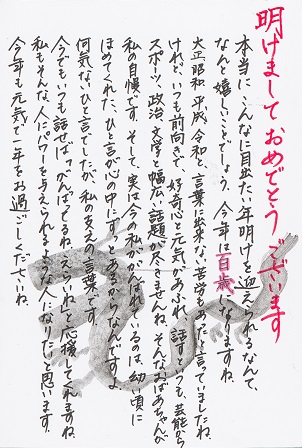 明けまして おめでとう ございます
本当に、こんなに目出たい年明けを迎えられるなんて、
なんと嬉しいことでしょう。今年は百歳になりますね。
大正昭和平成令和と、言葉に出来ない苦労もあったと言っていましたね。
けれど、いつも前向きで、好奇心と元気があふれ、話すといつも、芸能から
スポーツ、政治、文学と幅広い話題が尽きませんね。そんなおばあちゃんが
私の自慢です。そして、実は今の私ががんばれているのは、幼い頃に
ほめてくれた、ひと言が心の中にずっとあるからなんですよ。
何気ないひと言でしたが、私の支えの言葉です。
今でもいつも話せば、「がんばってるね、えらいね」と応援してくれますね。
私もそんな、人にパワーを与えられるような人になりたいと思います。
今年も元気で一年をお過ごしくださいね。